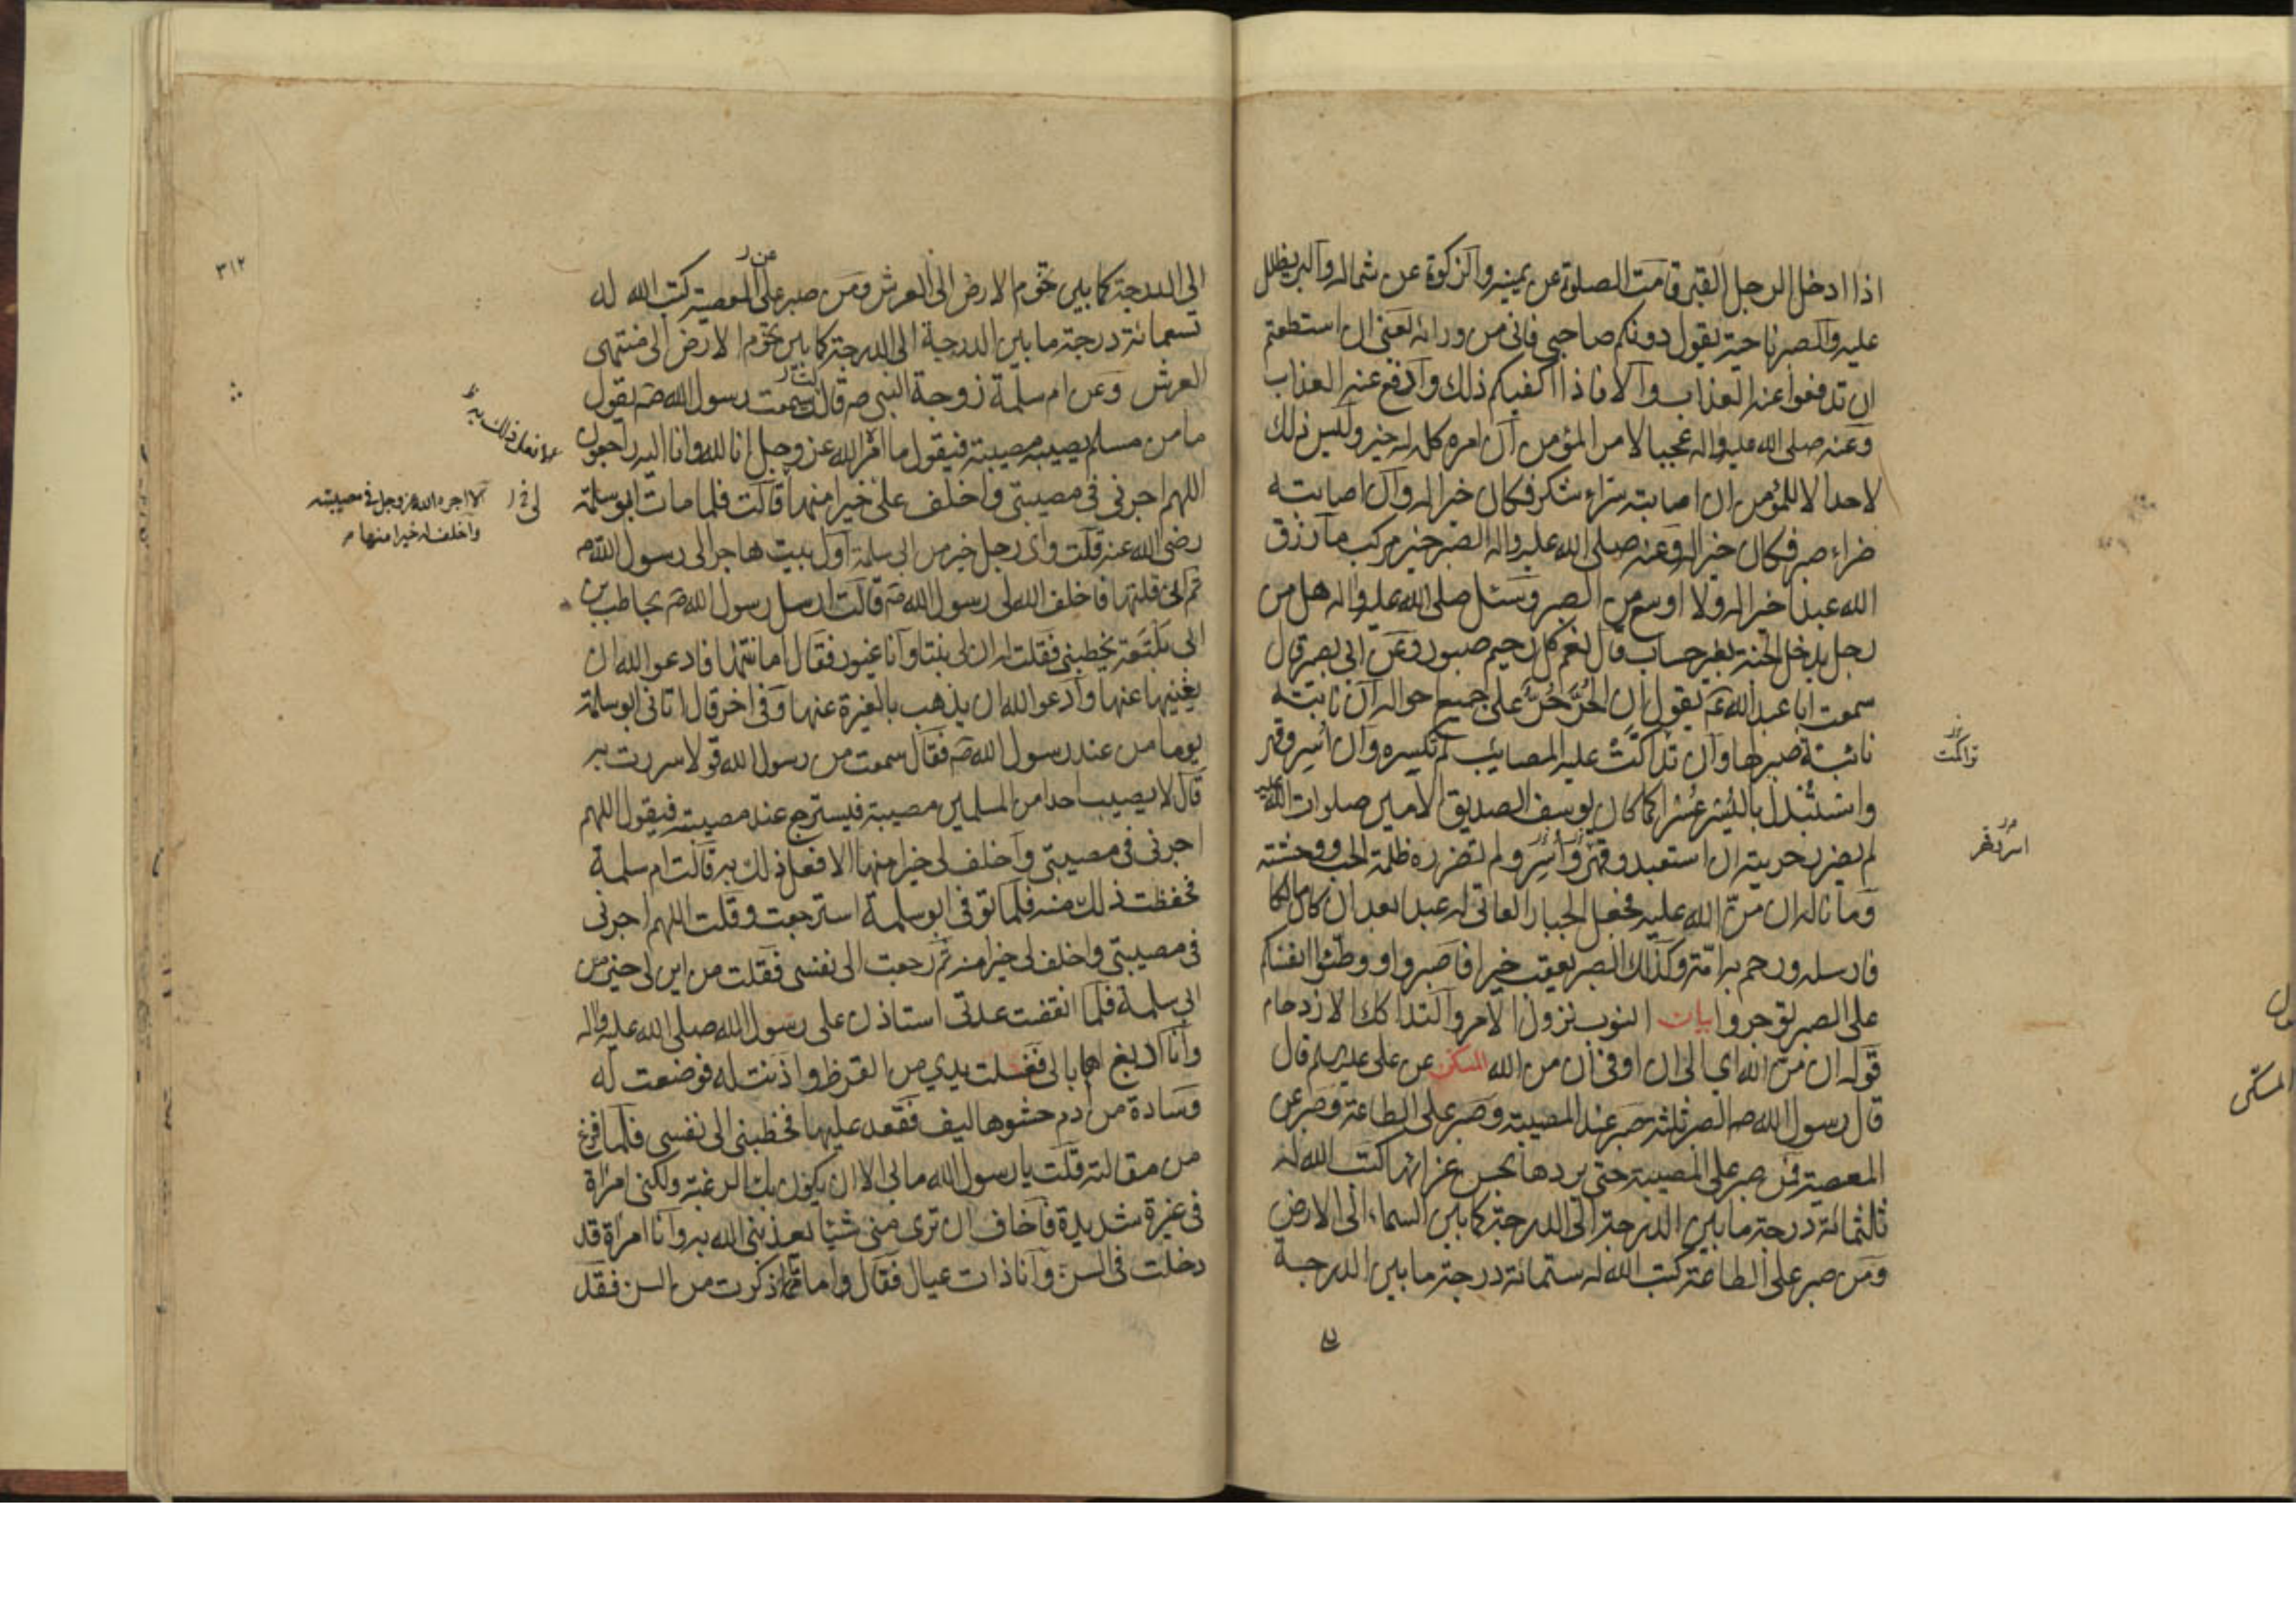 اذا ادخل الرجل القبر قامت الصلوة عن يمينه والزكوة عن شماله والبر يظلل
عليه والصبر ناحية يقول دونكم صاحبي فاني من ورائه يعني ان استطعتم
ان تدفعوا عنه العذاب والا فاذا اكفيكم ذلك وادفع عنه العذاب
وعنه صلى الله عليه واله عجبا لامر المؤمن ان امره كله له خير وليس ذلك
لاحد الا للمؤمن ان اصابته سراء شكر فكان خيرا له وان اصابته
ضراء صبر فكان خيرا له وعنه صلى الله عليه واله الصبر خير مركب ما رزق
الله عبدا خيرا له ولا اوسع من الصبر وسئل صلى الله عليه واله هل من
رجل يدخل الجنة بغير حساب قال نعم كل رحيم صبور وعن ابي بصير قال
سمعت ابا عبد الله ع يقول ان الحُرَّ حُرٌّ على جميع احواله ان نابته
نائبة صبر لها وان تداكّت عليه المصائب لم تكسره وان اُسِر وقهر
واستُبْدل باليُسْر عُسْرا كما كان يوسف الصديق الامين صلوات الله عليه
لم يضرر حريته ان استعبد وقهر واُسِر ولم تضرره ظلمة الجب ووحشته
وما ناله ان منّ الله عليه فجعل الجبار العاتي له عبدا بعد ان كان مالكا
فارسله ورحم به امة وكذلك الصبر يعقب خيرا فاصبروا ووطّئوا انفسكم
على الصبر توجروا بيان النوب نزول الامر والتداكك الازدحام
قوله ان منّ الله اي الى ان او في ان من الله المسكن عن علي عليه السلم قال
قال رسول الله ص الصبر ثلثة صبر عند المصيبة وصبر على الطاعة وصبر عن
المعصية فمن صبر على المصيبة حتى يردها بحسن عزائها كتب الله له
ثلثمائة درجة ما بين الدرجة الى الدرجة كما بين السماء الى الارض
ومن صبر على الطاعة كتب الله له ستمائة درجة ما بين الدرجة
تراكمت
المسكن
٣١٢
الى الدرجة كما بين تخوم الارض الى العرش ومن صبر على المعصية كتب الله له
عن
تسعمائة درجة ما بين الدرجة الى الدرجة كما بين تخوم الارض الى منتهى
العرش وعن ام سلمة زوجة النبي ص قالت سمعت رسول الله ص يقول
ما من مسلم يصيبه مصيبة فيقول ما امر الله عز وجل انا لله وانا اليه راجعون
اللهم اجرني في مصيبتي واخلف علىّ خيرا منها قالت فلما مات ابو سلمة
رضى الله عنه قلت واى رجل خير من ابي سلمة اول بيت هاجر الى رسول الله ص
ثم انى قلتها فاخلف الله لى رسول الله ص قالت ارسل رسول الله ص بحاطب بن
ابى بلتعة يخطبني فقلت له ان لى بنتا وانا غيور فقال اما بنتها فادعوا الله ان
يغنيها عنها وادعوا الله ان يذهب بالغيرة عنها وفي اخر قال اتانى ابو سلمة
يوما من عند رسول الله ص فقال سمعت من رسول الله قولا سررت به
قال لا يصيب احدا من المسلمين مصيبة فيسترجع عند مصيبته فيقول اللهم
اجرنى في مصيبتي واخلف لى خيرا منها الا فعل ذلك به قالت ام سلمة
فحفظت ذلك منه فلما توفى ابو سلمة استرجعت وقلت اللهم اجرنى
في مصيبتي واخلف لى خيرا منه ثم رجعت الى نفسى فقلت من اين لى خير من
ابى سلمة فلما انقضت عدتى استاذن على رسول الله صلى الله عليه واله
وانا ادبغ اهابا لى فغسلت يدي من القرظ واذنت له فوضعت له
وسادة من ادم حشوها ليف فقعد عليها فخطبنى الى نفسى فلما فرغ
من مقالته قلت يا رسول الله ما بى الا ان يكون بك الرغبة ولكنى امراة
فى غيرة شديدة فاخاف ان ترى منى شيئا يعذبنى الله به وانا امراة قد
دخلت فى السن وانا ذات عيال فقال واما ما ذكرت من السن فقد
الا اجره الله عز وجل في مصيبته
واخلف له خيرا منها